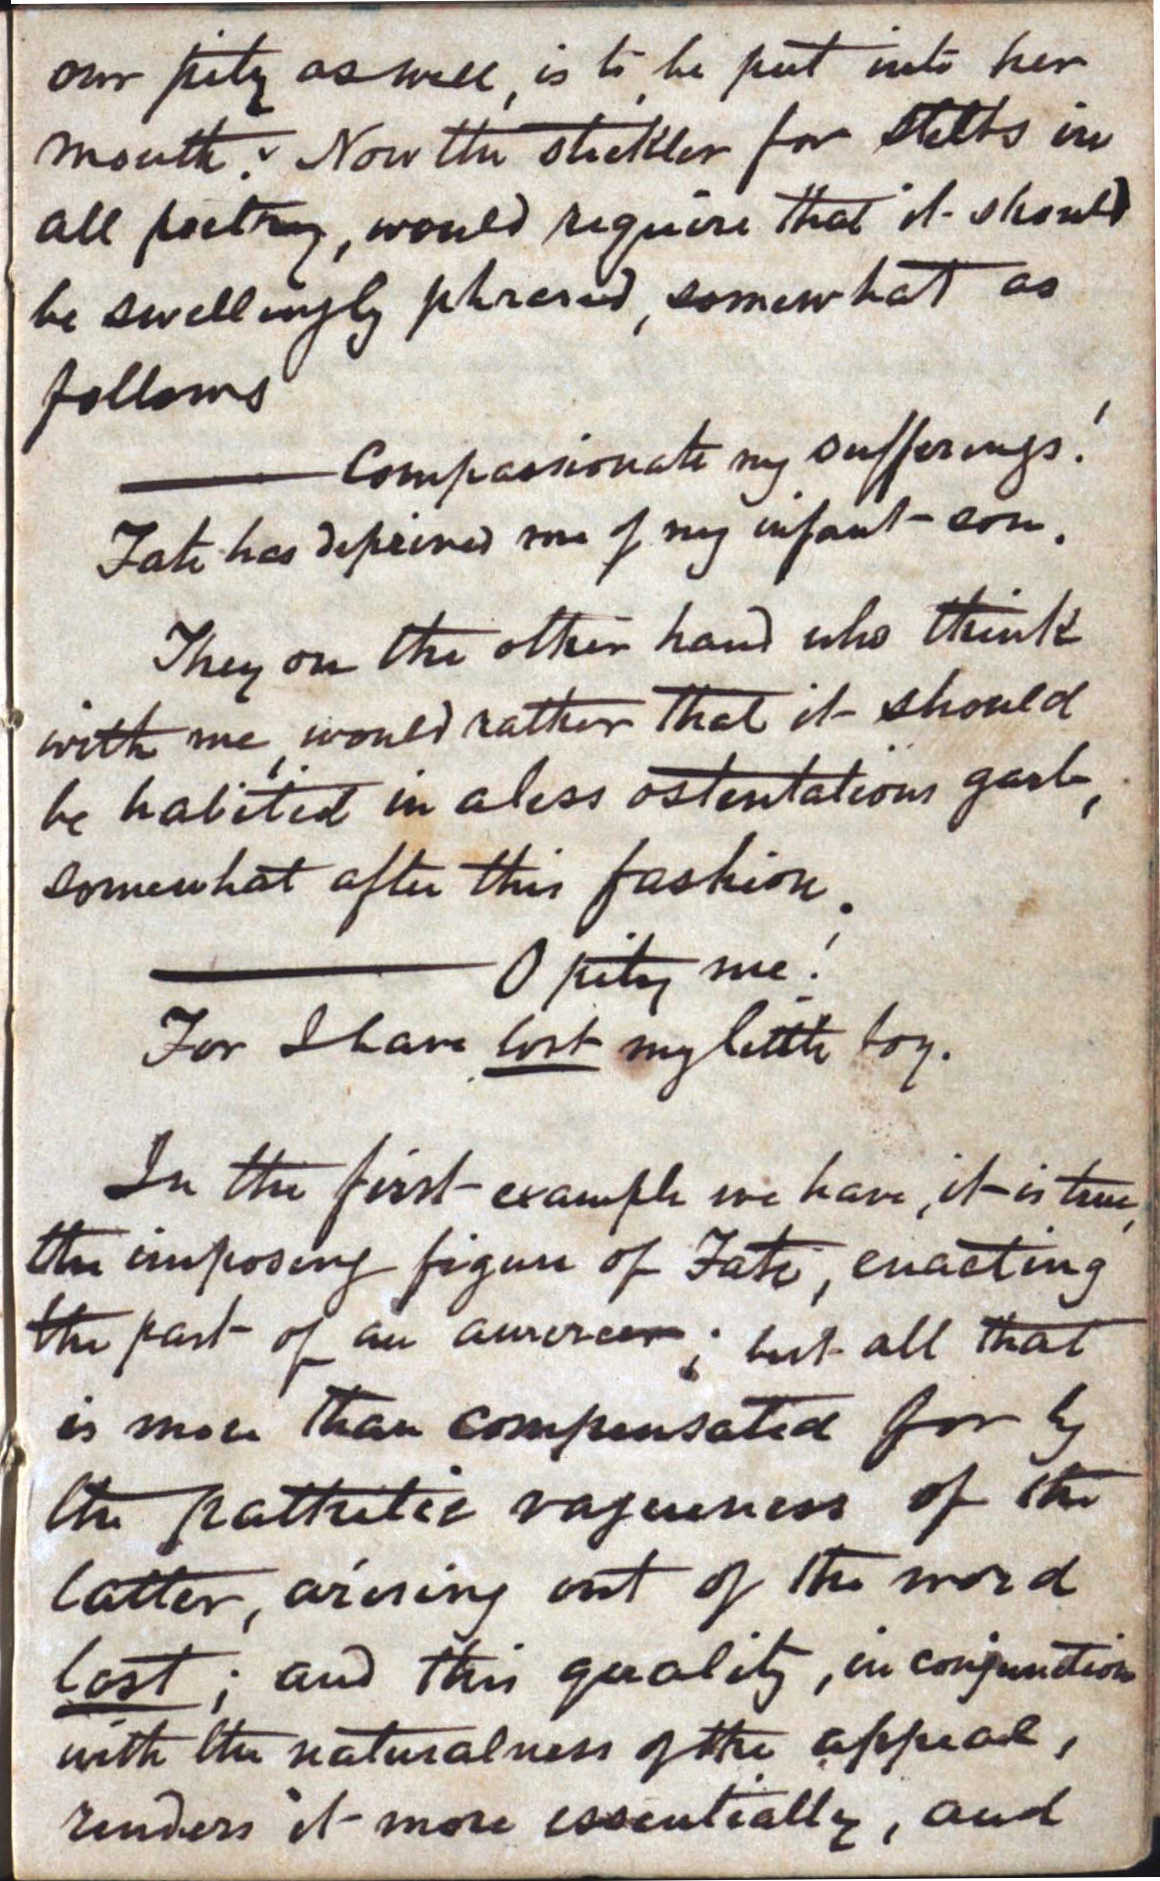 our pity as well, is to be put into her
mouth. Now the stickler for stilts in
all poetry, would require that it should
be swellingly phrased, somewhat as
follows
——— Compassionate my sufferings!
Fate has deprived me of my infant-son.
They on the other hand who think
with me, would rather that it should
be habited in a less ostentatious garb,
somewhat after this fashion.
——— O pity me!
For I have lost my little boy.
In the first example we have, it is true,
the imposing figure of Fate, enacting
the part of an ; but all that
is more than compensated for by
the pathetic vagueness of the
latter, arising out of the word
lost; and this quality, in conjunction
with the naturalness of the appeal,
renders it more essentially, and